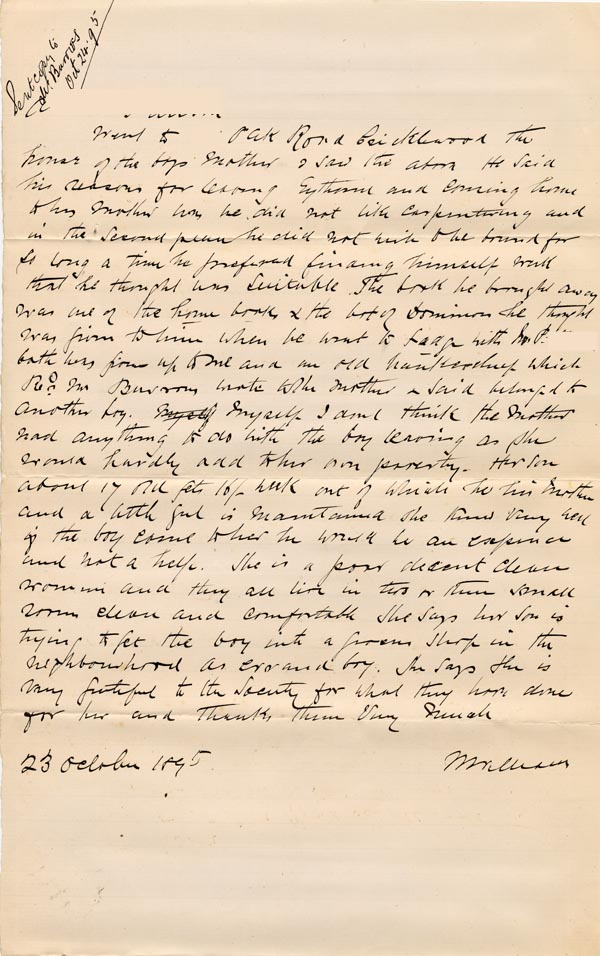 Sent copy to
Mr. Burrows
Oct 24. 95
Went to Oak Road Cricklewood the
house of the boys mother & saw the above He said
his reasons for leaving Eythorne and coming home
to his mother was he did not like carpentering and
in the second place he did not wish to be bound for
so long a time he preferred finding himself work
that he thought was suitable. The book he brought away
was one of the home books & the box of Dominoes he thought
was given to him when he went to with Mr.
both was given up to me and an old hankerchief which
Revd Mr Burrows wrote to the mother & said belonged to
another boy. Myself Myself I dont think the mother
had anything to do with the boy leaving as she
would hardly add to her own poverty. Her son
about 17 old gets 16/- week out of which he his mother
and a little girl is maintained she knew very well
if the boy come to her he would be an expence
and not a help. She is a poor decent clean
woman and they all live in two or three small
rooms clean and comfortable She says her son is
trying to get the boy into a grocers shop in the
neighbourhood as errand boy. She says she is
very grateful to the Society for what they have done
for her and thanks them very much
23 October 1895